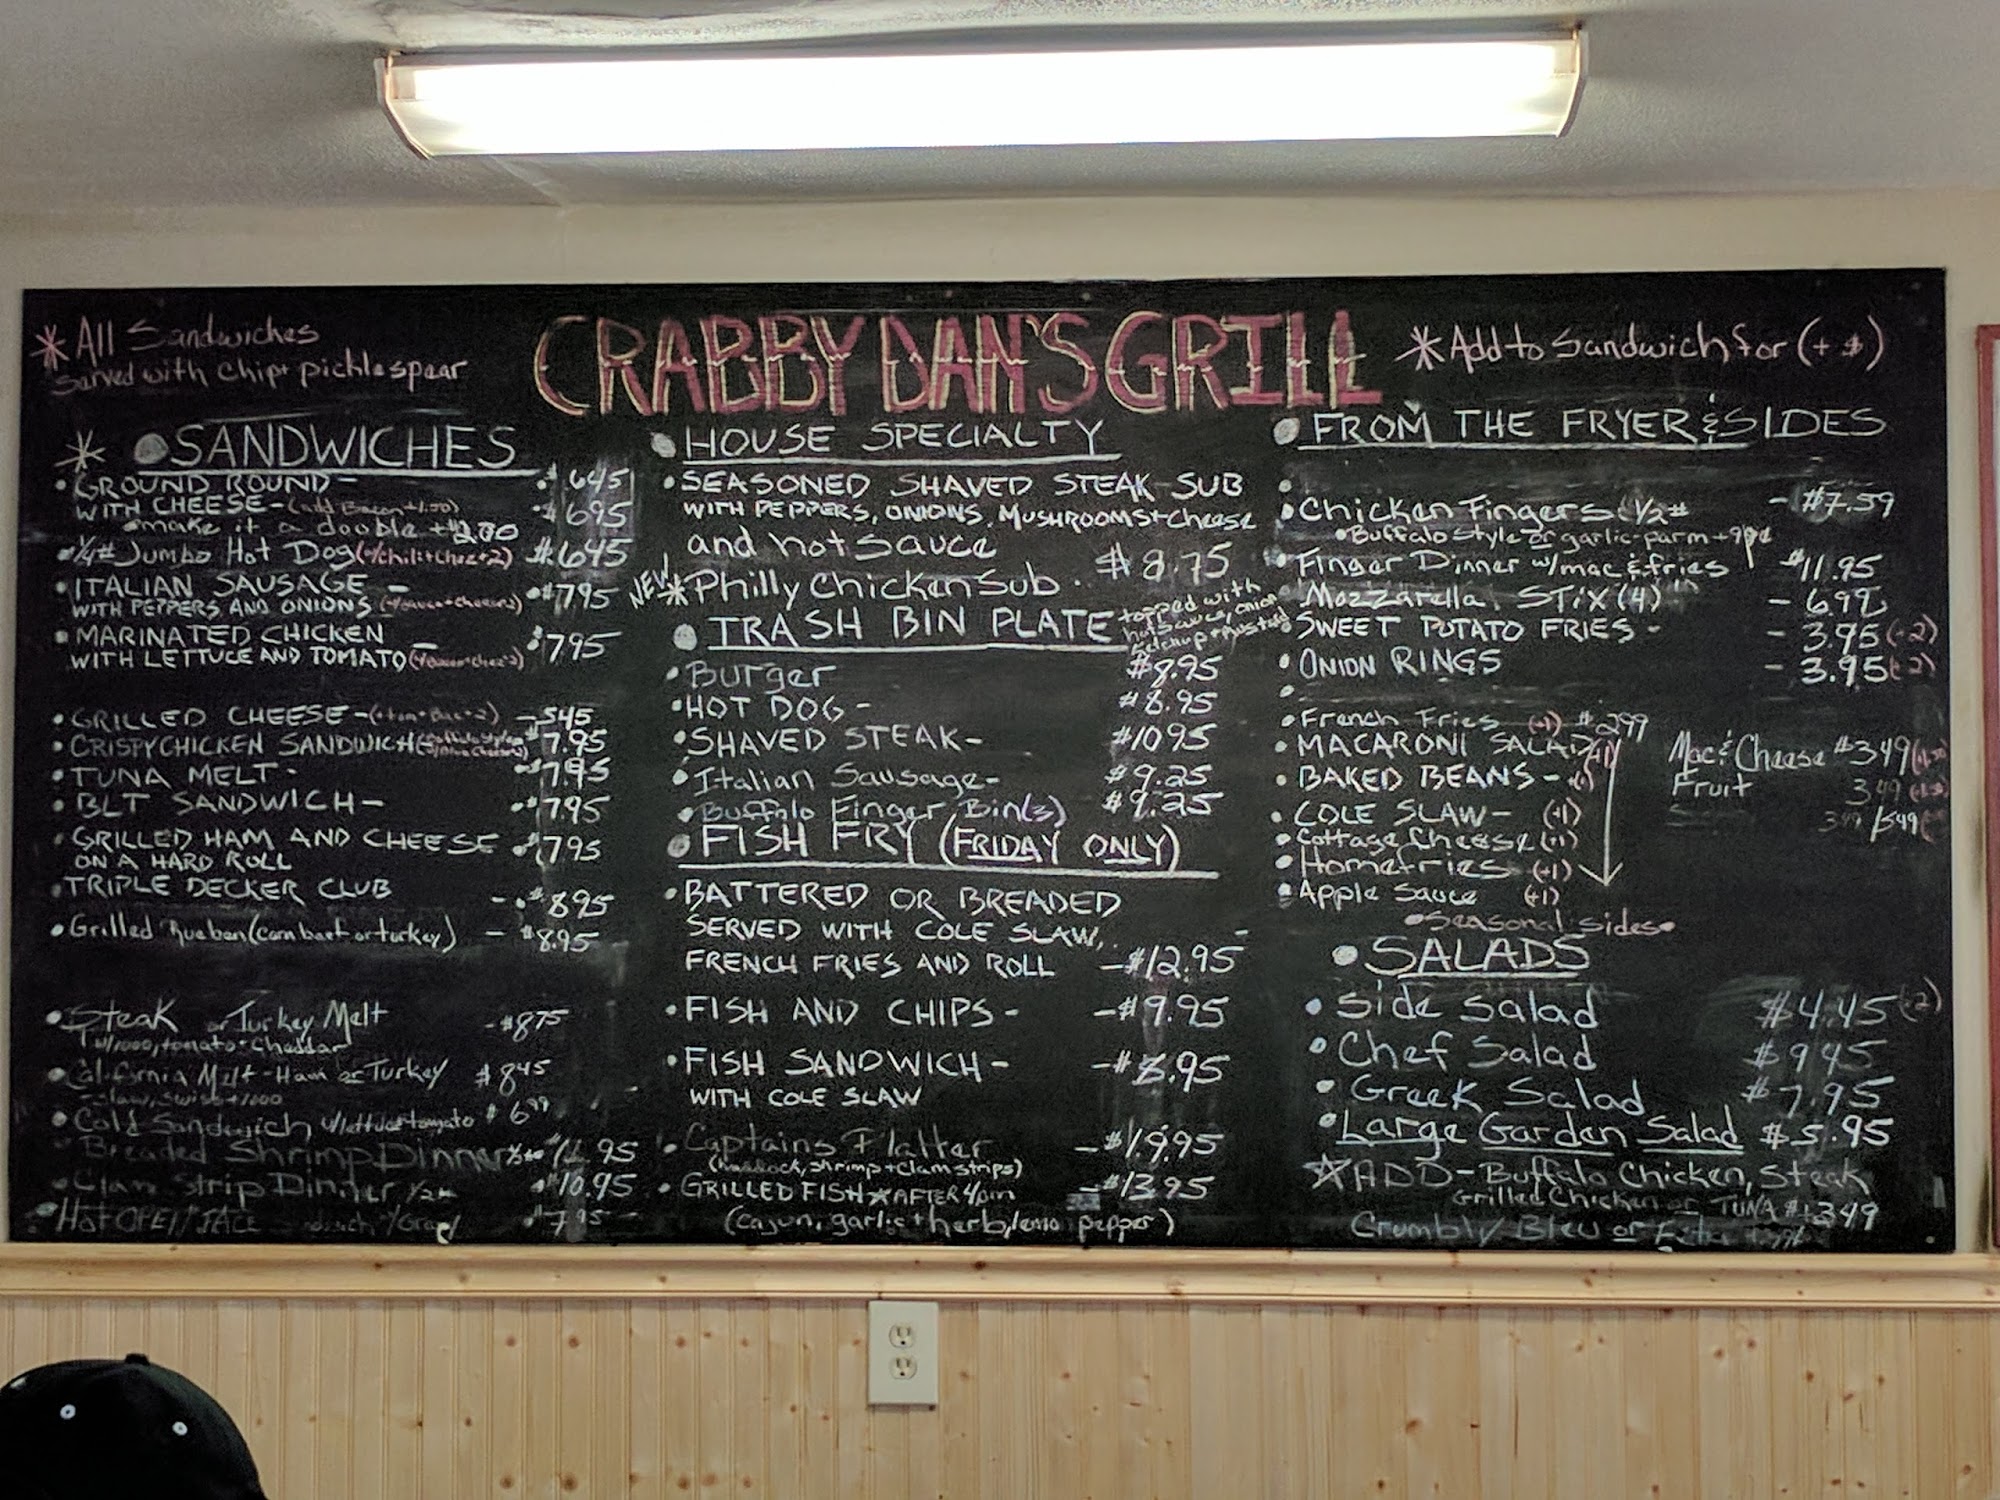 CRABBY DAN'S GRILL
* All Sandwiches
served with chip + pickle spear
* Add to Sandwich for (+ $)
* SANDWICHES
GROUND ROUND - $6.45
WITH CHEESE - (add Bacon +1.50) $6.95
*make it a double +$2.00
1/4# Jumbo Hot Dog (w/chili+chez+2) $6.45
ITALIAN SAUSAGE - $7.95
WITH PEPPERS AND ONIONS
MARINATED CHICKEN $7.95
WITH LETTUCE AND TOMATO
GRILLED CHEESE - 5.45
CRISPY CHICKEN SANDWICH $7.95
TUNA MELT - 7.95
BLT SANDWICH - 7.95
GRILLED HAM AND CHEESE $7.95
ON A HARD ROLL
TRIPLE DECKER CLUB - $8.95
Grilled Rueben (corn beef or turkey) - $8.95
Steak or Turkey Melt - $8.75
tomato + Cheddar
California Melt - Ham or Turkey $8.45
slaw, swiss + 1000
Cold Sandwich w/lettuce + tomato $6.99
Breaded Shrimp Dinner
Clam Strip Dinner 1/2# $10.95
Hot OPEN FACE w/Gravy $7.95
HOUSE SPECIALTY
SEASONED SHAVED STEAK SUB
WITH PEPPERS, ONIONS, MUSHROOMS + cheese
and hot sauce $8.75
NEW * Philly Chicken Sub
TRASH BIN PLATE
topped with
hot sauce, onion
ketchup + mustard
Burger $8.95
HOT DOG - $8.95
SHAVED STEAK - $10.95
Italian Sausage - $9.25
Buffalo Finger Bin (3) $9.25
FISH FRY (FRIDAY ONLY)
BATTERED OR BREADED
SERVED WITH COLE SLAW,
FRENCH FRIES AND ROLL - $12.95
FISH AND CHIPS - - $9.95
FISH SANDWICH - - $8.95
WITH COLE SLAW
Captains Platter - $19.95
(haddock, shrimp + clam strips)
GRILLED FISH * AFTER 4pm - $13.95
(cajun, garlic + herb, lemon pepper)
FROM THE FRYER & SIDES
Chicken Fingers (1/2# - $7.59
Buffalo Style or garlic-parm
Finger Dinner w/mac & fries $11.95
Mozzarella STiX (4) - 6.99
SWEET POTATO FRIES - - 3.95 (+2)
ONION RINGS - 3.95 (+2)
French Fries (+1) $2.99
MACARONI SALAD (+1)
BAKED BEANS - (+1)
COLE SLAW - (+1)
Cottage Cheese (+1)
Homefries (+1)
Apple Sauce (+1)
Seasonal sides
Mac & Cheese $3.49 (+1.50)
Fruit 3.49
SALADS
Side Salad $4.45 (+2)
Chef Salad $9.45
Greek Salad $7.95
Large Garden Salad $5.95
*ADD - Buffalo Chicken, Steak
Grilled Chicken or TUNA $+3.49
Crumbly Bleu or Feta